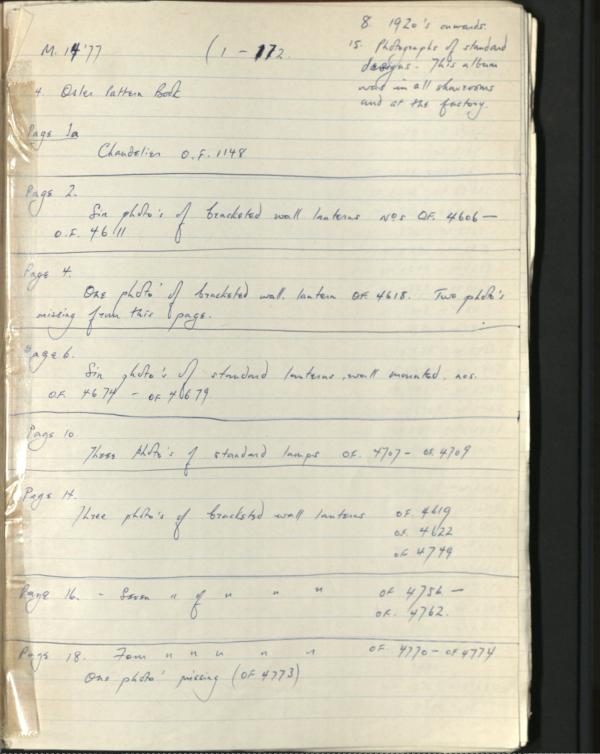 M. 14'77 (1 - 172.
8. 1920's onwards.
15. Photographs of standard
designs. This album
was in all showrooms
and at the factory.
4. Osler Pattern Book
Page 1a
Chandelier O.F. 1148
Page 2.
Six photo's of bracketed wall lanterns nos OF. 4606 —
O.F. 4611
Page 4.
One photo' of bracketed wall lantern OF 4618. Two photo's
missing from this page.
Page 6.
Six photo's of standard lanterns wall mounted. nos.
OF. 4674 - OF 4679
Page 10.
Three photo's of standard lamps OF. 4707 - OF. 4709
Page 14.
Three photo's of bracketed wall lanterns OF. 4619
OF. 4622
OF 4749
Page 16. - Seven " of " " " OF 4756 —
OF. 4762.
Page 18. Four " " " " " OF. 4770 - OF 4774
One photo' missing (OF 4773)